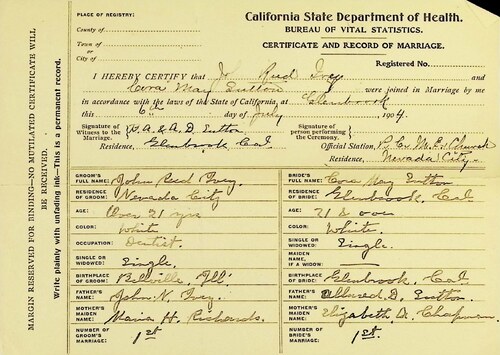 California State Department of Health.
BUREAU OF VITAL STATISTICS.
CERTIFICATE AND RECORD OF MARRIAGE.
PLACE OF REGISTRY:
County of
Town of
or
City of
Registered No.
I HEREBY CERTIFY that Jo Reed Ivey and
Cora May Sutton were joined in Marriage by me
in accordance with the laws of the State of California, at Glenbrook
this 6th day of July 1904
Signature of Witness to the Marriage. A. & A. D. Sutton
Residence, Glenbrook Cal
Signature of person performing the Ceremony.
Official Station, M. E. Church
Residence, Nevada City
GROOM'S FULL NAME: John Reed Ivey
RESIDENCE OF GROOM: Nevada City
AGE: Over 21 yrs
COLOR: White
OCCUPATION: Dentist.
SINGLE OR WIDOWED: Single.
BIRTHPLACE OF GROOM: Bellville, Ill.
FATHER'S NAME: John N. Ivey
MOTHER'S MAIDEN NAME: Maria H. Richards.
NUMBER OF GROOM'S MARRIAGE: 1st
BRIDE'S FULL NAME: Cora May Sutton
RESIDENCE OF BRIDE: Glenbrook, Cal
AGE: 21 & over
COLOR: White.
SINGLE OR WIDOWED: Single.
MAIDEN NAME, IF A WIDOW:
BIRTHPLACE OF BRIDE: Glenbrook, Cal
FATHER'S NAME: D. Sutton
MOTHER'S MAIDEN NAME: Elizabeth A. Chapman
NUMBER OF BRIDE'S MARRIAGE: 1st.
MARGIN RESERVED FOR BINDING—NO MUTILATED CERTIFICATE WILL BE RECEIVED.
Write plainly with unfading ink—This is a permanent record.